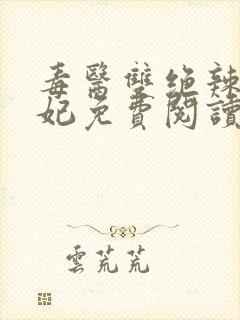 毒醫雙絕辣
妃免費閱讀
雲芃芃